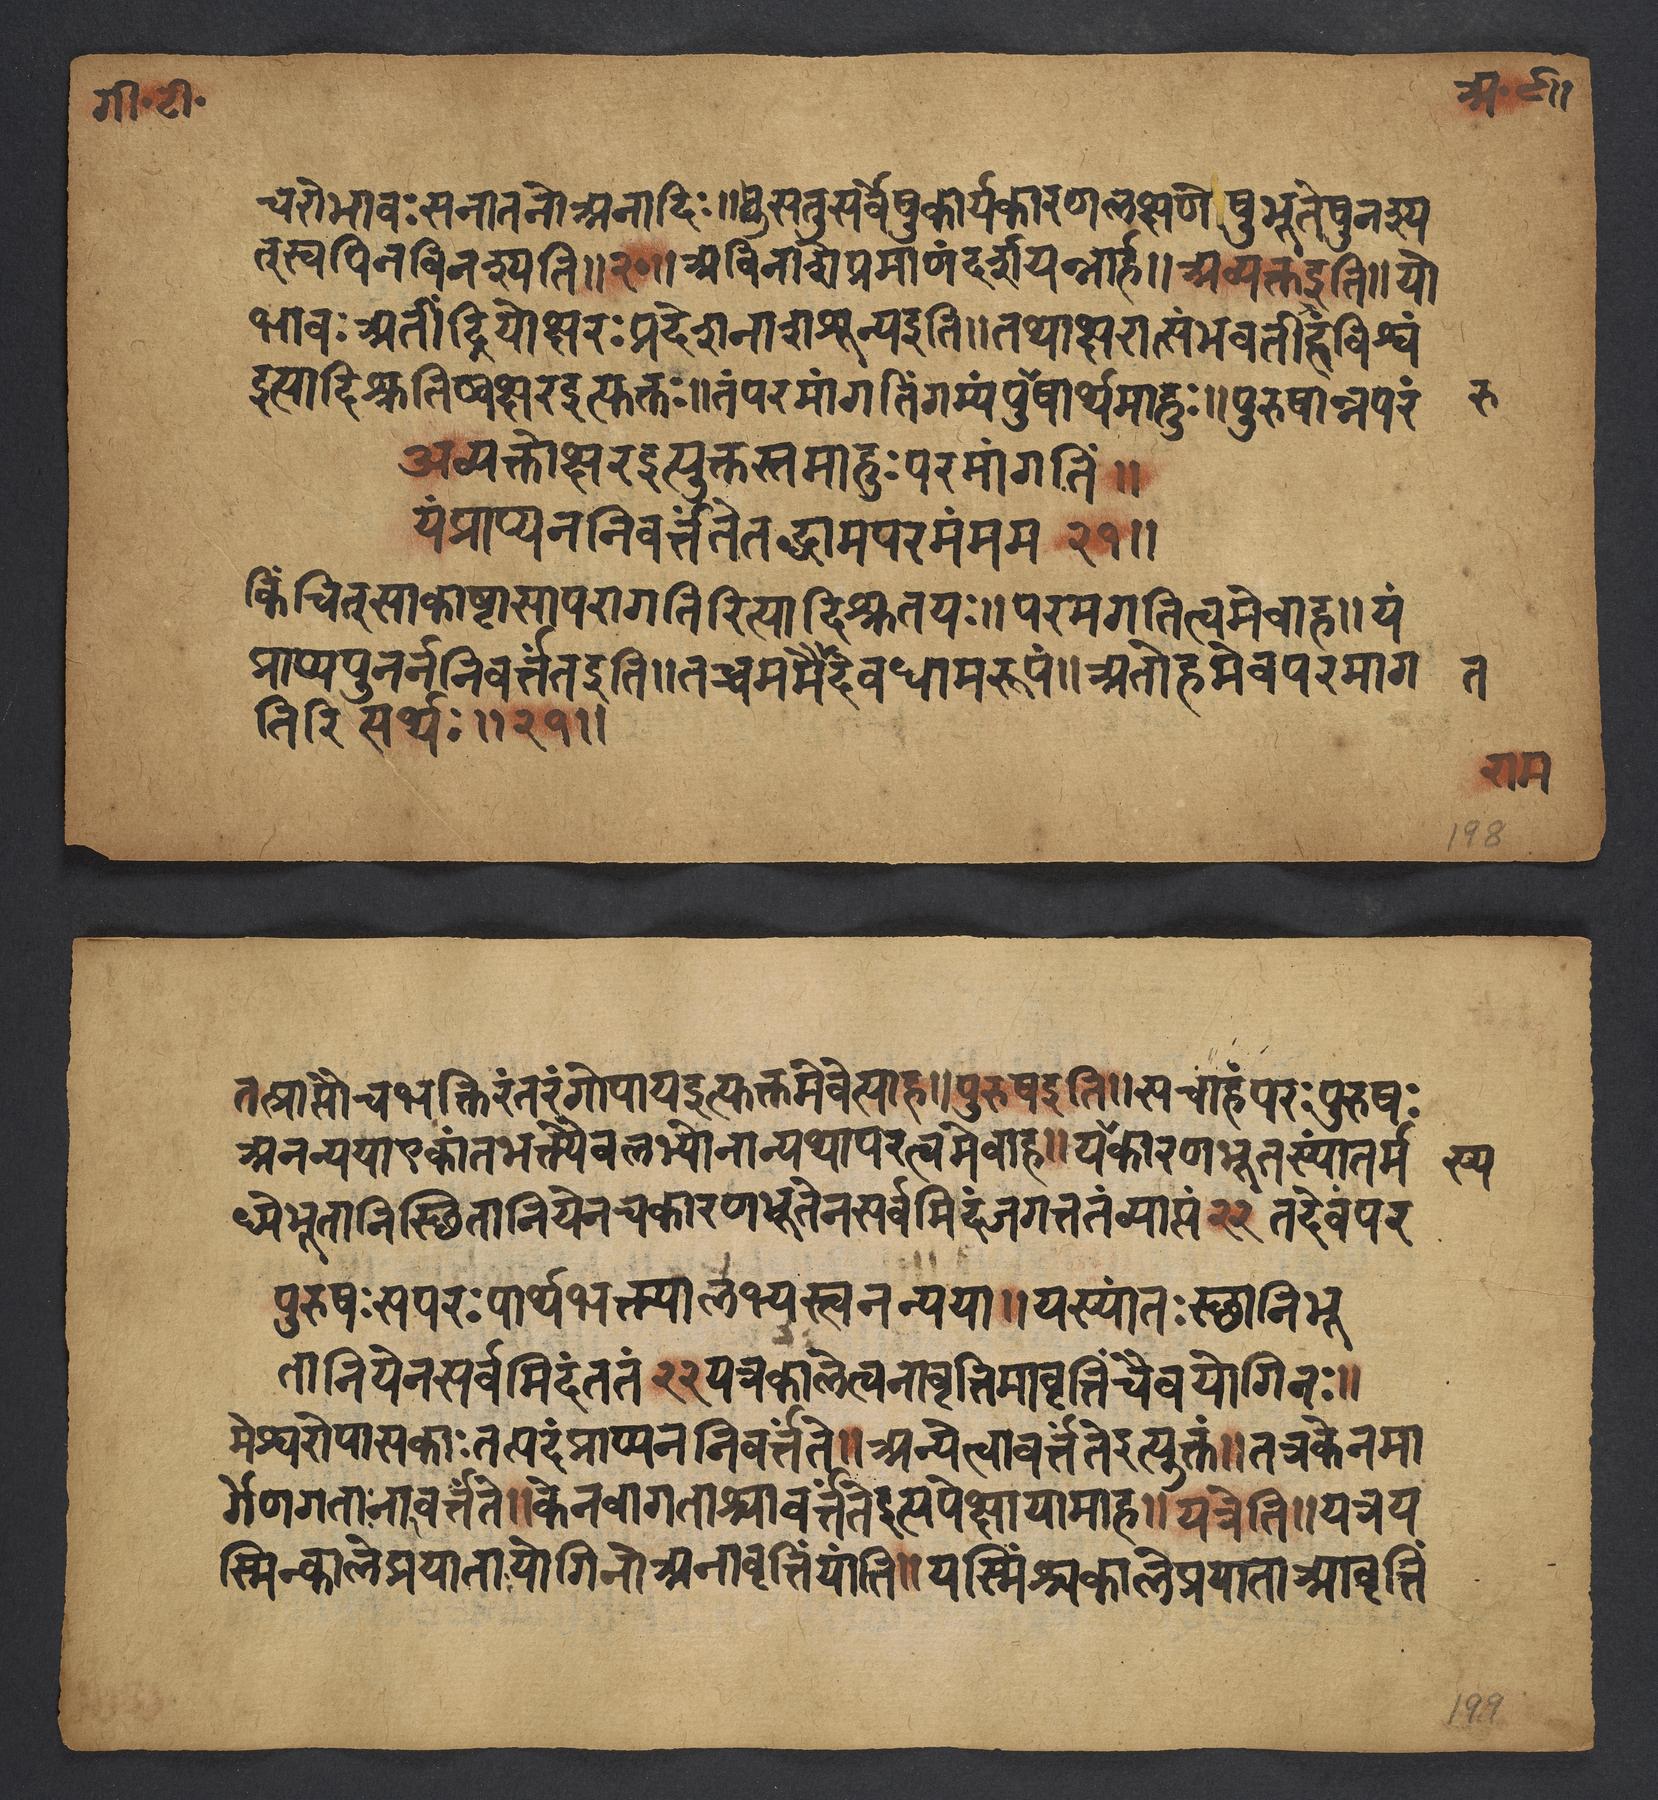 गी॰ टी॰
अ॰ ८॥
चरोभावः सनातनोअनादिः॥ सतुसर्वेषुकार्यकारणलक्षणेषुभूतेषुनश्य
त्स्वपिनविनश्यति॥२०॥ अविनाशेप्रमाणंदर्शयन्नाह॥ अव्यक्तइति॥ यो
भावः अतींद्रियोक्षरः प्रवेशनाशशून्यइति॥ तथाक्षरात्संभवतीहविश्वं
इत्यादिश्रुतिष्वक्षरइत्युक्तः॥ तंपरमांगतिंगम्यंपुषार्थमाहुः॥ पुरुषान्नपरं
रु
अव्यक्तोक्षरइत्युक्तस्तमाहुःपरमांगतिं॥
यंप्राप्यननिवर्त्तंतेतद्धामपरमंमम २१॥
किंचित्साकाष्ठासापरागतिरित्यादिश्रुतयः॥ परमगतित्वमेवाह॥ यं
प्राप्यपुनर्ननिवर्त्तंतइति॥ तच्चममैवधामरूपं॥ अतोहमेवपरमाग
त
तिरित्यर्थः॥२१॥
राम
198
तत्प्राप्तौचभक्तिरंतरंगोपायइत्युक्तमेवेत्याह॥ पुरुषइति॥ सचाहंपरःपुरुषः
अनन्ययाएकांतभक्त्यैवलभ्योनान्यथापरत्वमेवाह॥ यकारणभूतस्यांतर्म
स्य
ध्येभूतानिस्थितानियेनचकारणभूतेनसर्वमिदंजगत्ततंव्याप्तं २२ तदेवंपर
पुरुषःसपरःपार्थभक्त्यालभ्यस्त्वनन्यया॥ यस्यांतःस्थानिभू
तानियेनसर्वमिदंततं २२ यत्रकालेत्वनावृत्तिमावृत्तिंचैवयोगिनः॥
मेश्वरोपासकाःतत्पदंप्राप्यननिवर्त्तंते॥ अन्येत्वावर्त्तंतेइत्युक्तं॥ तत्रकेनमा
र्गेणगतानावर्त्तंते॥ केनवागताश्चावर्त्तंतेइत्यपेक्षायामाह॥ यत्रेति॥ यत्रय
स्मिन्कालेप्रयातायोगिनोअनावृत्तिंयांति॥ यस्मिंश्चकालेप्रयाताआवृत्तिं
199